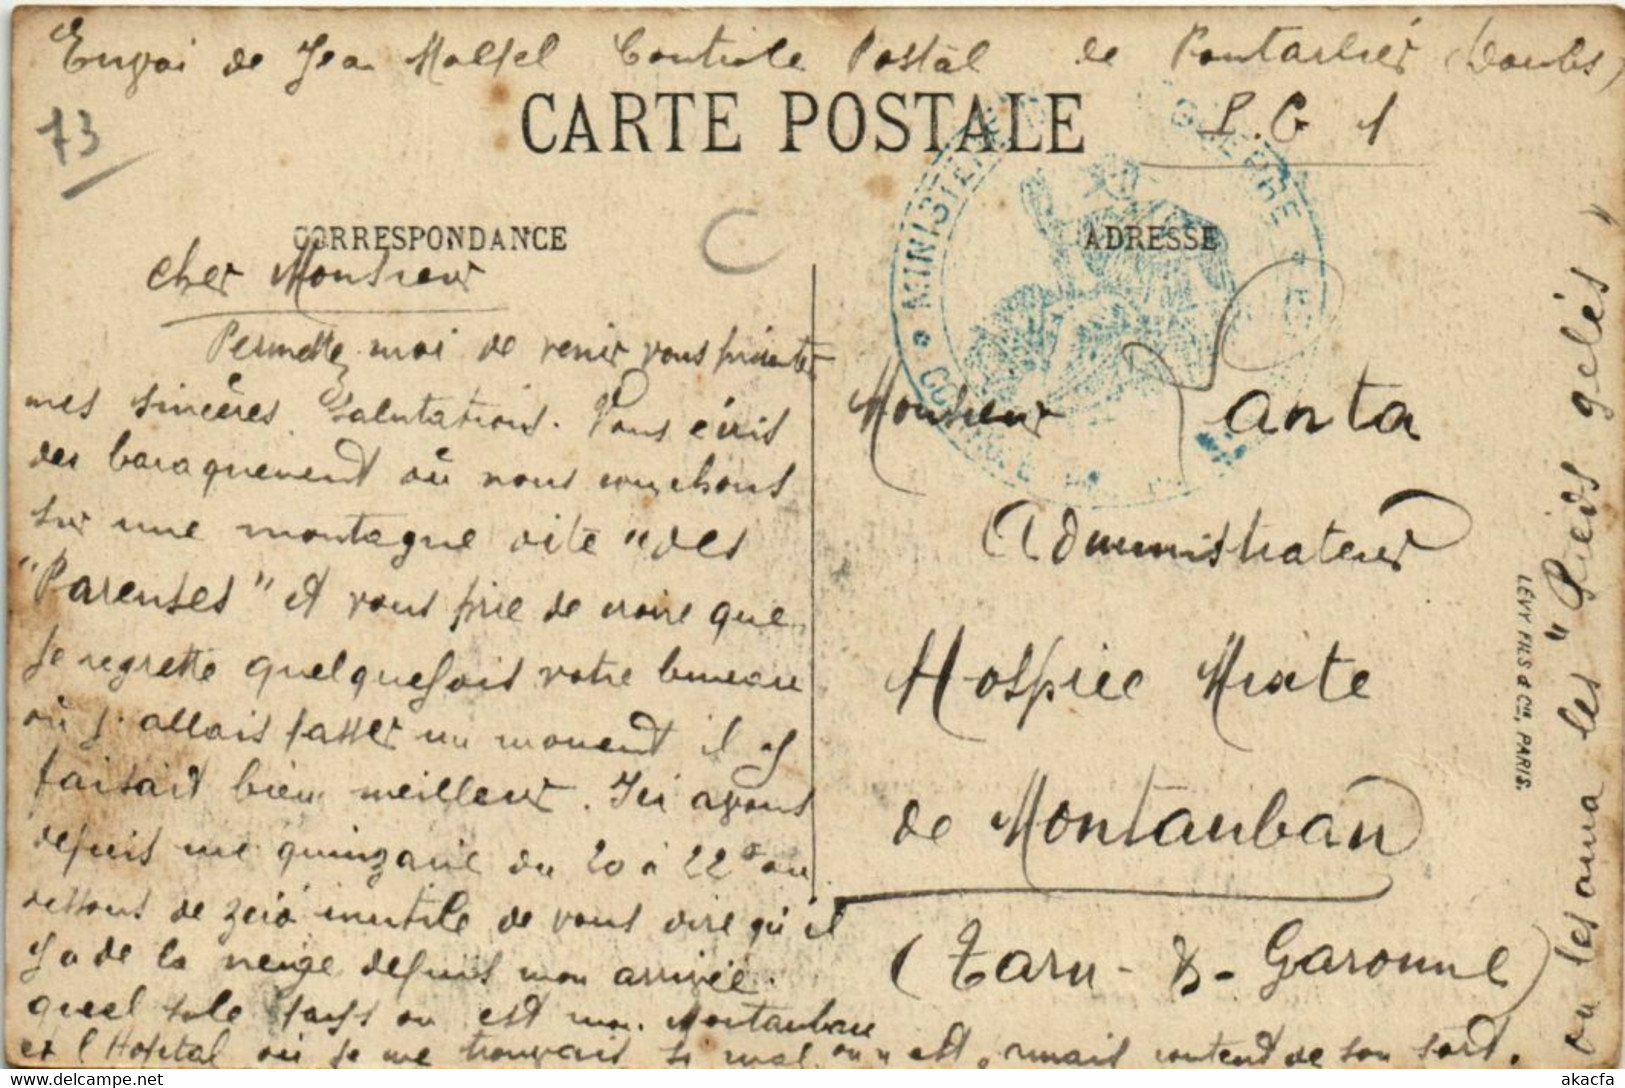 Envoi de Jean Controle Postal de Pontarlier (Doubs)
73
CARTE POSTALE
P.C 1
CORRESPONDANCE
ADRESSE
MINISTERE GUERRE
cher Monsieur
Permettez moi de venir vous présenter
mes sincères salutations. Vous écris
des baraquement où nous couchons
sur une montagne dite "des
"Parenses" et vous prie de croire que
je regrette quelquefois votre bureau
où j'allais passer un moment il y
faisait bien meilleur. Ici avons
depuis une quinzaine du 20 à 22° au
dessous de zéro inutile de vous dire qu'il
y a de la neige depuis mon arrivée.
quel sale pays où est mon Montauban
et l'Hopital où je me trouvais si mal, on n'est jamais content de son sort.
Monsieur Panta
Administrateur
Hospice Mixte
de Montauban
(Tarn-&-Garonne)
LÉVY FILS & Cie, PARIS.
on les aura les "Pieds gelés"
akacfa